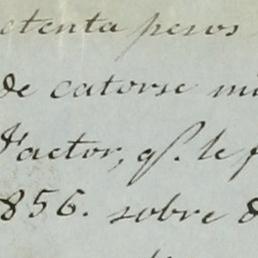 etenta pesos
de catorse mi
Factor, qᵉ. le f
856. sobre